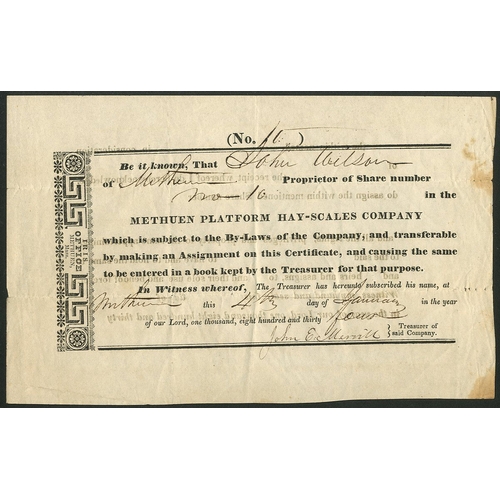 (No. 16)
Be it known, That John Wilson
of Methuen Proprietor of Share number
No 16 in the
METHUEN PLATFORM HAY-SCALES COMPANY
which is subject to the By-Laws of the Company, and transferable
by making an Assignment on this Certificate, and causing the same
to be entered in a book kept by the Treasurer for that purpose.
In Witness whereof, The Treasurer has hereunto subscribed his name, at
Methuen this 4th day of January in the year
of our Lord, one thousand, eight hundred and thirty four
John E. Merrill Treasurer of
said Company.
IRIS
OFFICE
METHUEN,
Mass.